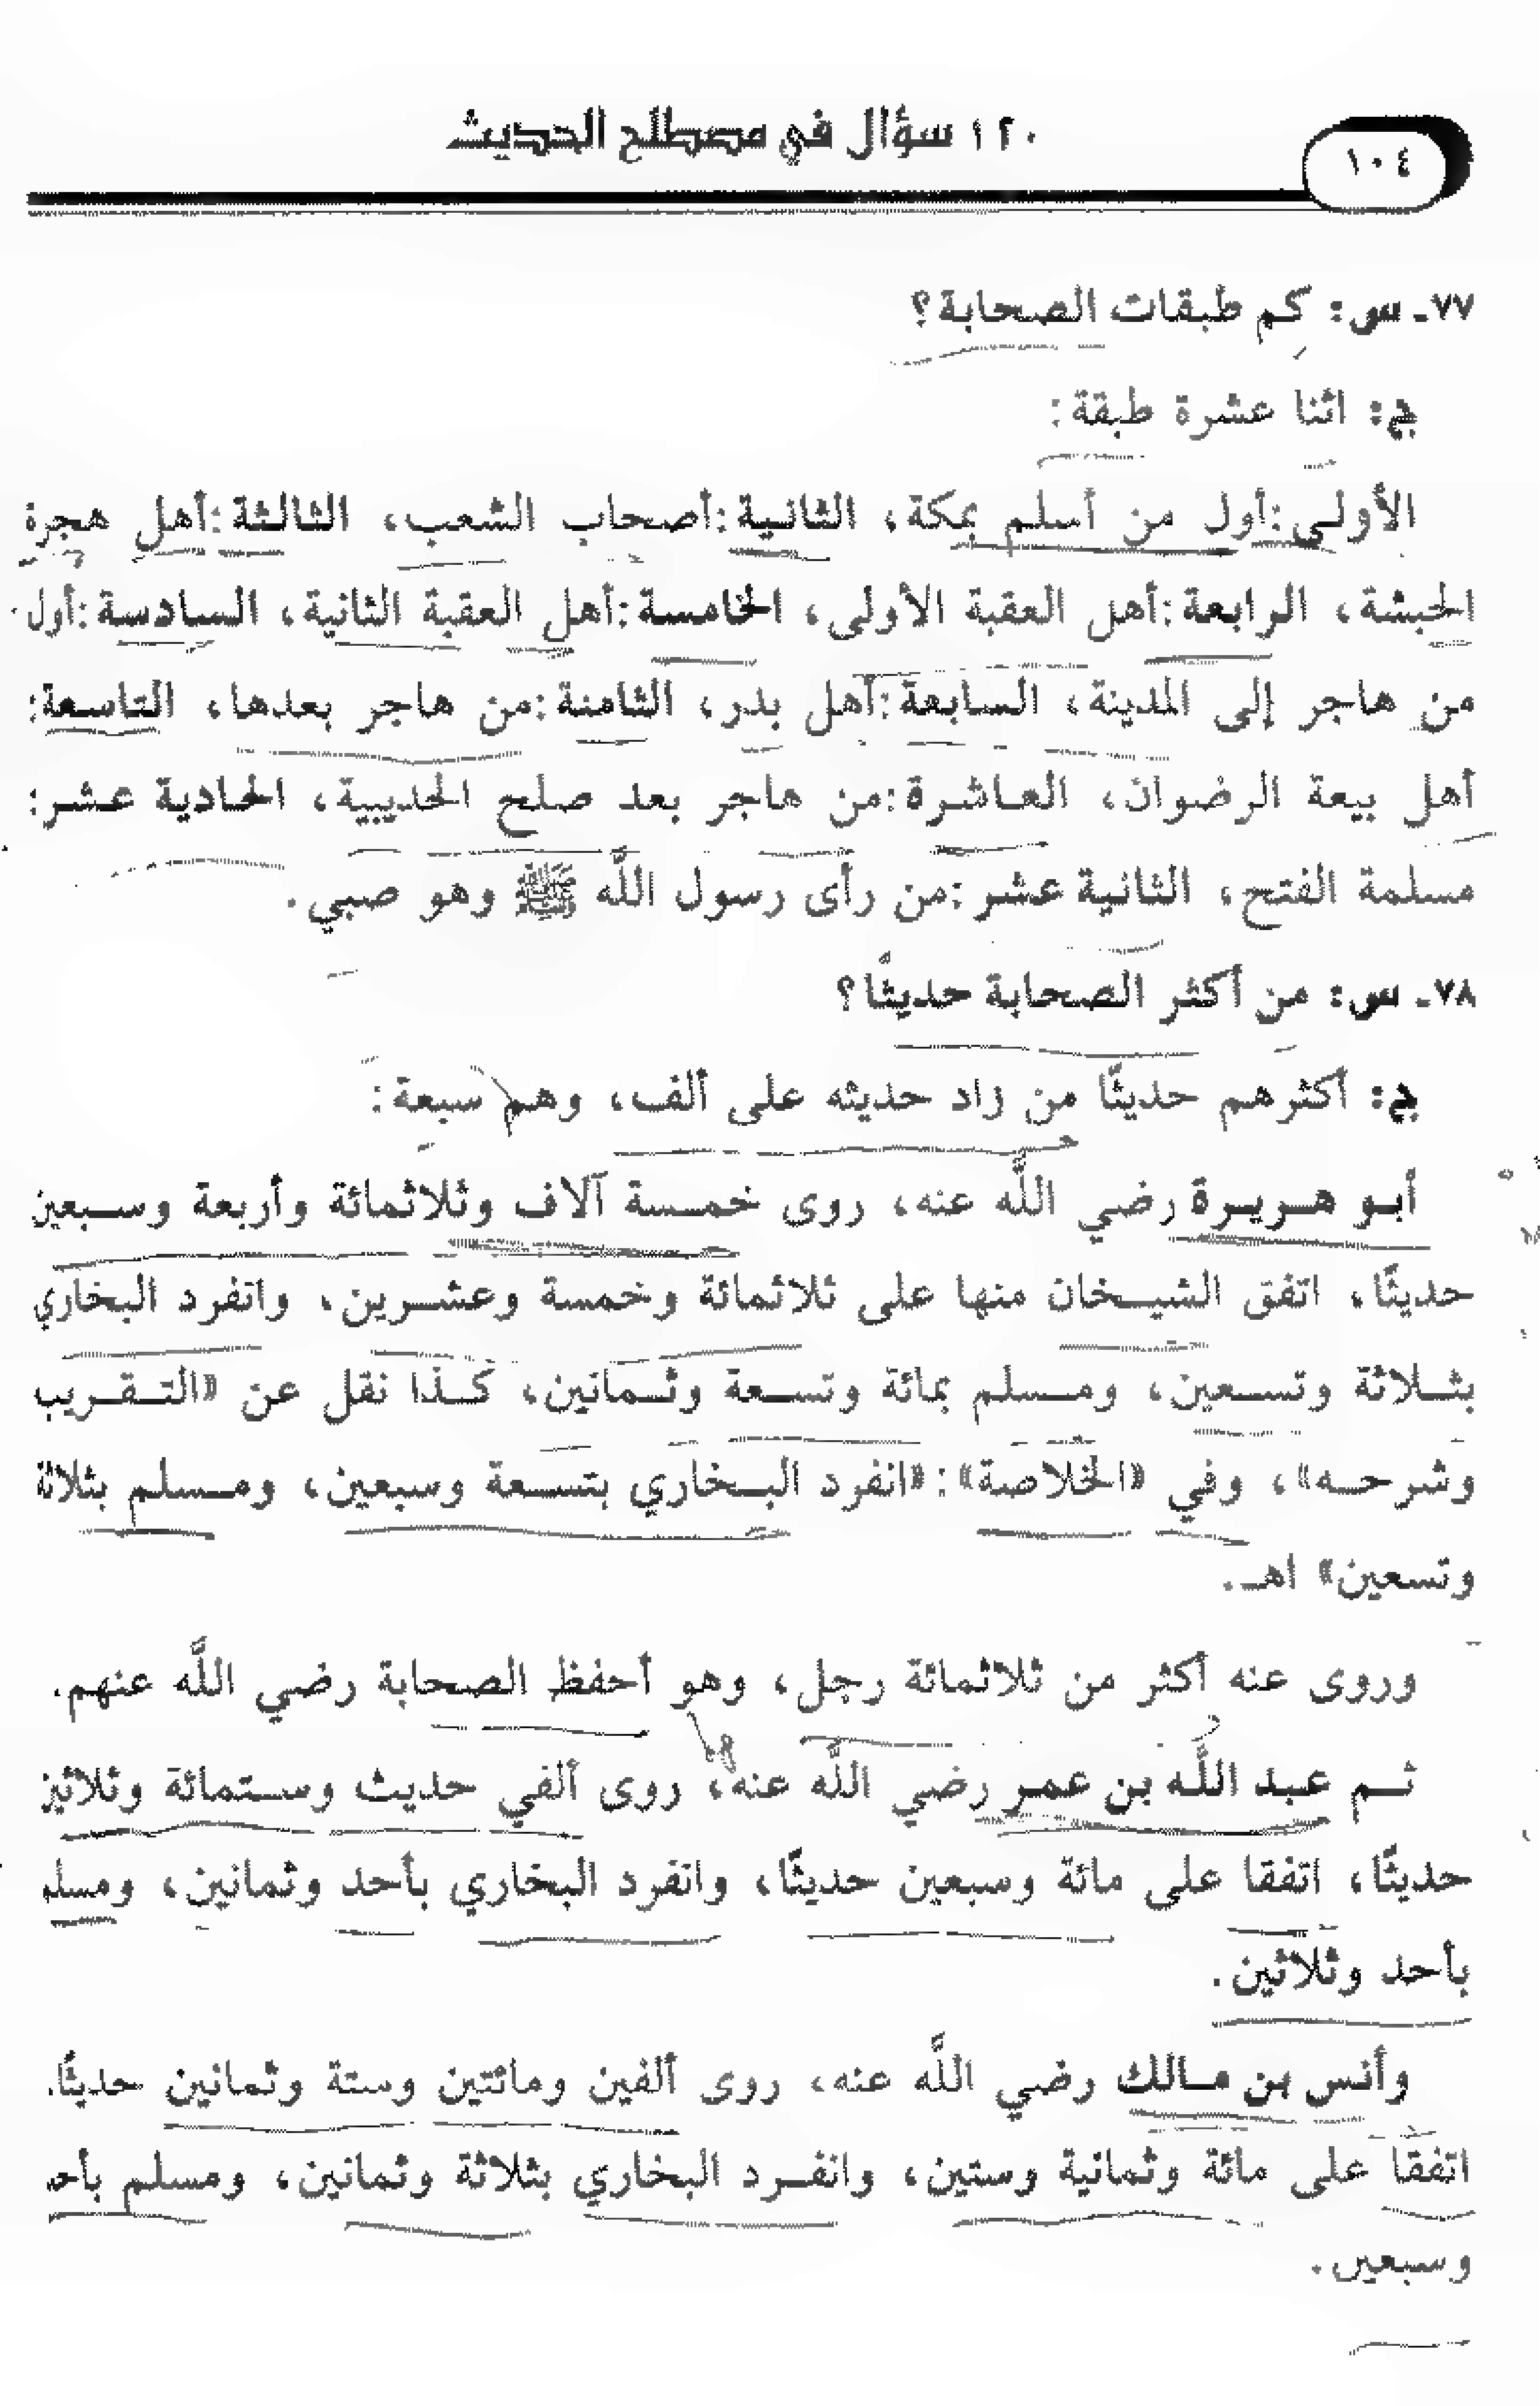 ١٢٠ سؤال في مصطلح الحديث
١٠٤
٧٧ـ س: كم طبقات الصحابة؟
ج: اثنا عشرة طبقة:
الأولى:أول من أسلم بمكة، الثانية:أصحاب الشعب، الثالثة:أهل هجرة
الحبشة، الرابعة:أهل العقبة الأولى، الخامسة:أهل العقبة الثانية، السادسة:أول
من هاجر إلى المدينة، السابعة:أهل بدر، الثامنة:من هاجر بعدها، التاسعة:
أهل بيعة الرضوان، العاشرة:من هاجر بعد صلح الحديبية، الحادية عشر:
مسلمة الفتح، الثانية عشر:من رأى رسول اللَّه ﷺ وهو صبي.
٧٨ـ س: من أكثر الصحابة حديثًا؟
ج: أكثرهم حديثًا من زاد حديثه على ألف، وهم سبعة:
أبو هريرة رضي اللَّه عنه، روى خمسة آلاف وثلاثمائة وأربعة وسبعين
حديثًا، اتفق الشيخان منها على ثلاثمائة وخمسة وعشرين، وانفرد البخاري
بثلاثة وتسعين، ومسلم بمائة وتسعة وثمانين، كذا نقل عن «التقريب
وشرحه»، وفي «الخلاصة»: «انفرد البخاري بتسعة وسبعين، ومسلم بثلاثة
وتسعين» اهـ.
وروى عنه أكثر من ثلاثمائة رجل، وهو أحفظ الصحابة رضي اللَّه عنهم.
ثم عبد اللَّه بن عمر رضي اللَّه عنه، روى ألفي حديث وستمائة وثلاثين
حديثًا، اتفقا على مائة وسبعين حديثًا، وانفرد البخاري بأحد وثمانين، ومسلم
بأحد وثلاثين.
وأنس بن مالك رضي اللَّه عنه، روى ألفين ومائتين وستة وثمانين حديثًا.
اتفقا على مائة وثمانية وستين، وانفرد البخاري بثلاثة وثمانين، ومسلم بأحد
وسبعين.